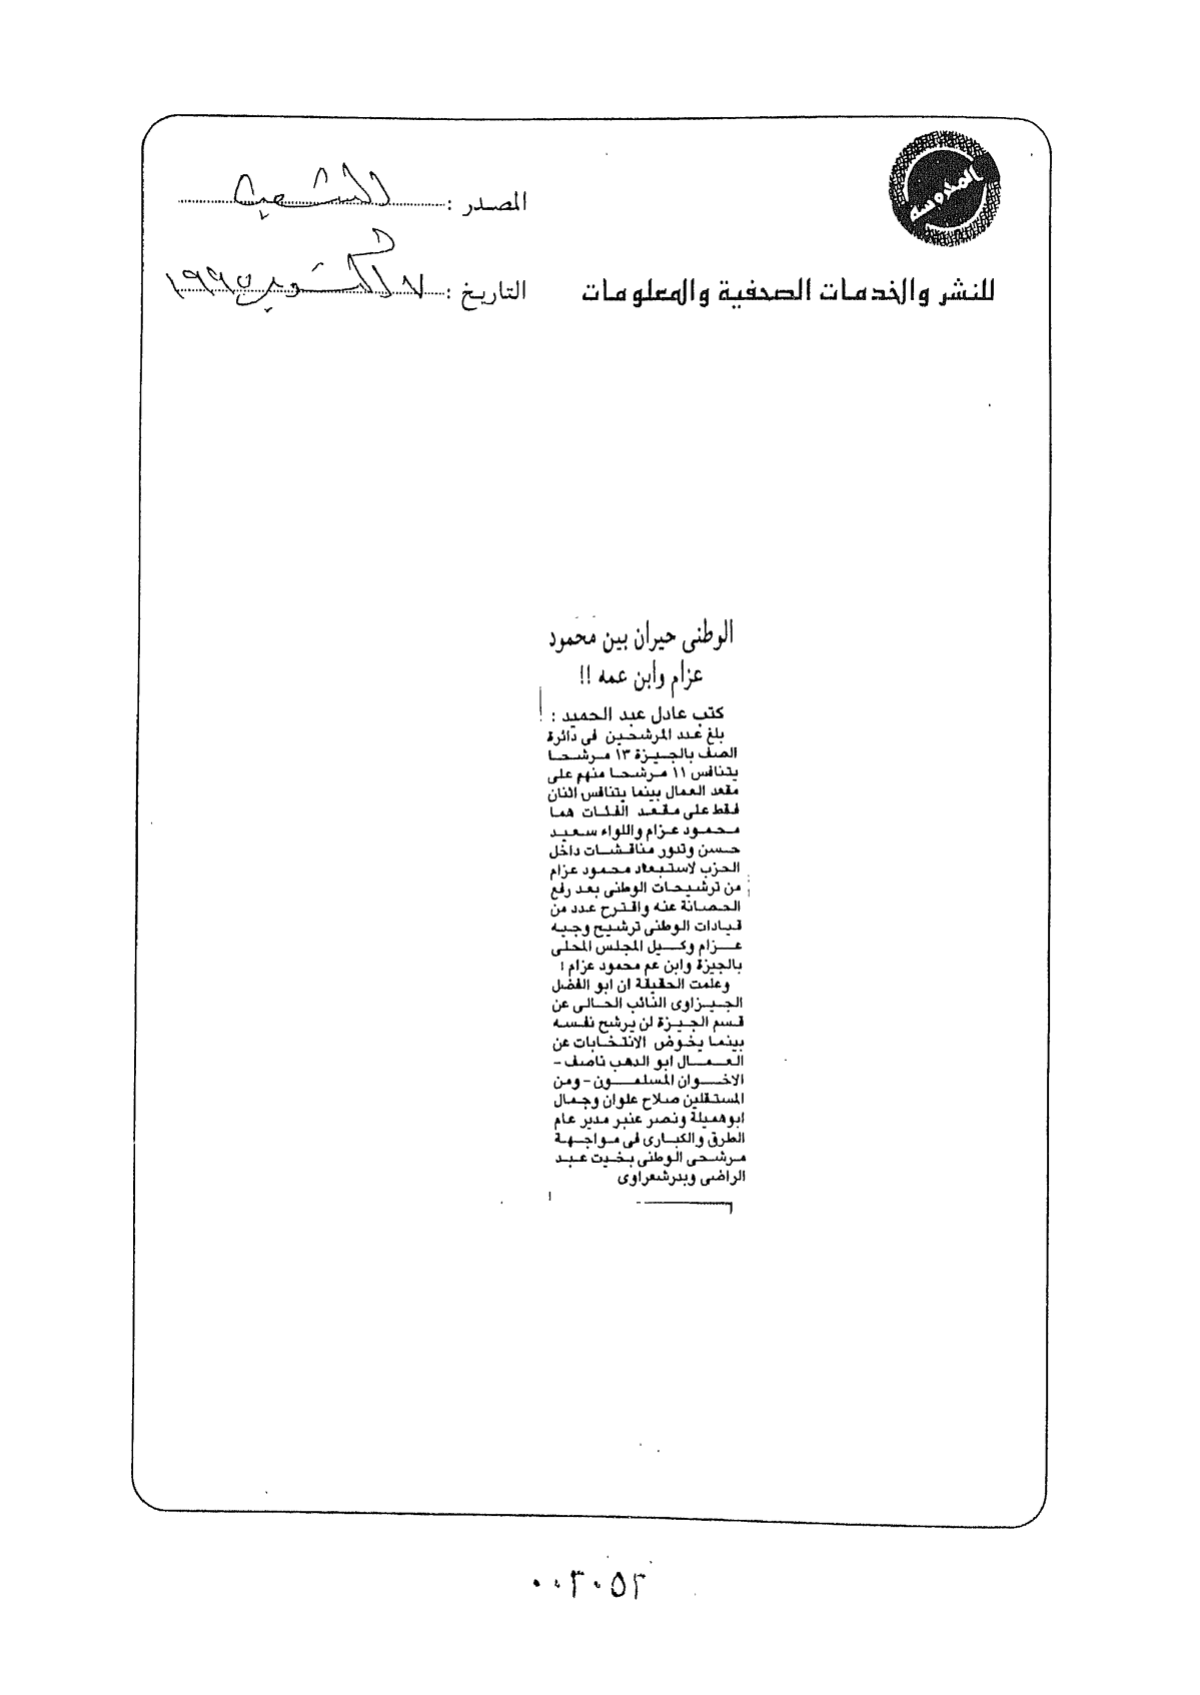 المحروسة
المصدر : الشعب
للنشر والخدمات الصحفية والمعلومات
التاريخ : أكتوبر ١٩٩٥
الوطنى حيران بين محمود
عزام وابن عمه !!
كتب عادل عبد الحميد :
بلغ عدد المرشحين فى دائرة
الصف بالجيزة ١٣ مرشحا
يتنافس ١١ مرشحا منهم على
مقعد العمال بينما يتنافس اثنان
فقط على مقعد الفئات هما
محمود عزام واللواء سعيد
حسن وتدور مناقشات داخل
الحزب لاستبعاد محمود عزام
من ترشيحات الوطنى بعد رفع
الحصانة عنه واقترح عدد من
قيادات الوطنى ترشيح وجيه
عزام وكيل المجلس المحلى
بالجيزة وابن عم محمود عزام !
وعلمت الحقيقة ان ابو الفضل
الجيزاوى النائب الحالى عن
قسم الجيزة لن يرشح نفسه
بينما يخوض الانتخابات عن
العمال ابو الدهب ناصف -
الاخوان المسلمون - ومن
المستقلين صلاح علوان وجمال
ابوهميلة ونصر عنبر مدير عام
الطرق والكبارى فى مواجهة
مرشحى الوطنى بخيت عبد
الراضى وبدر شعراوى
٠٠٣٠٥٢